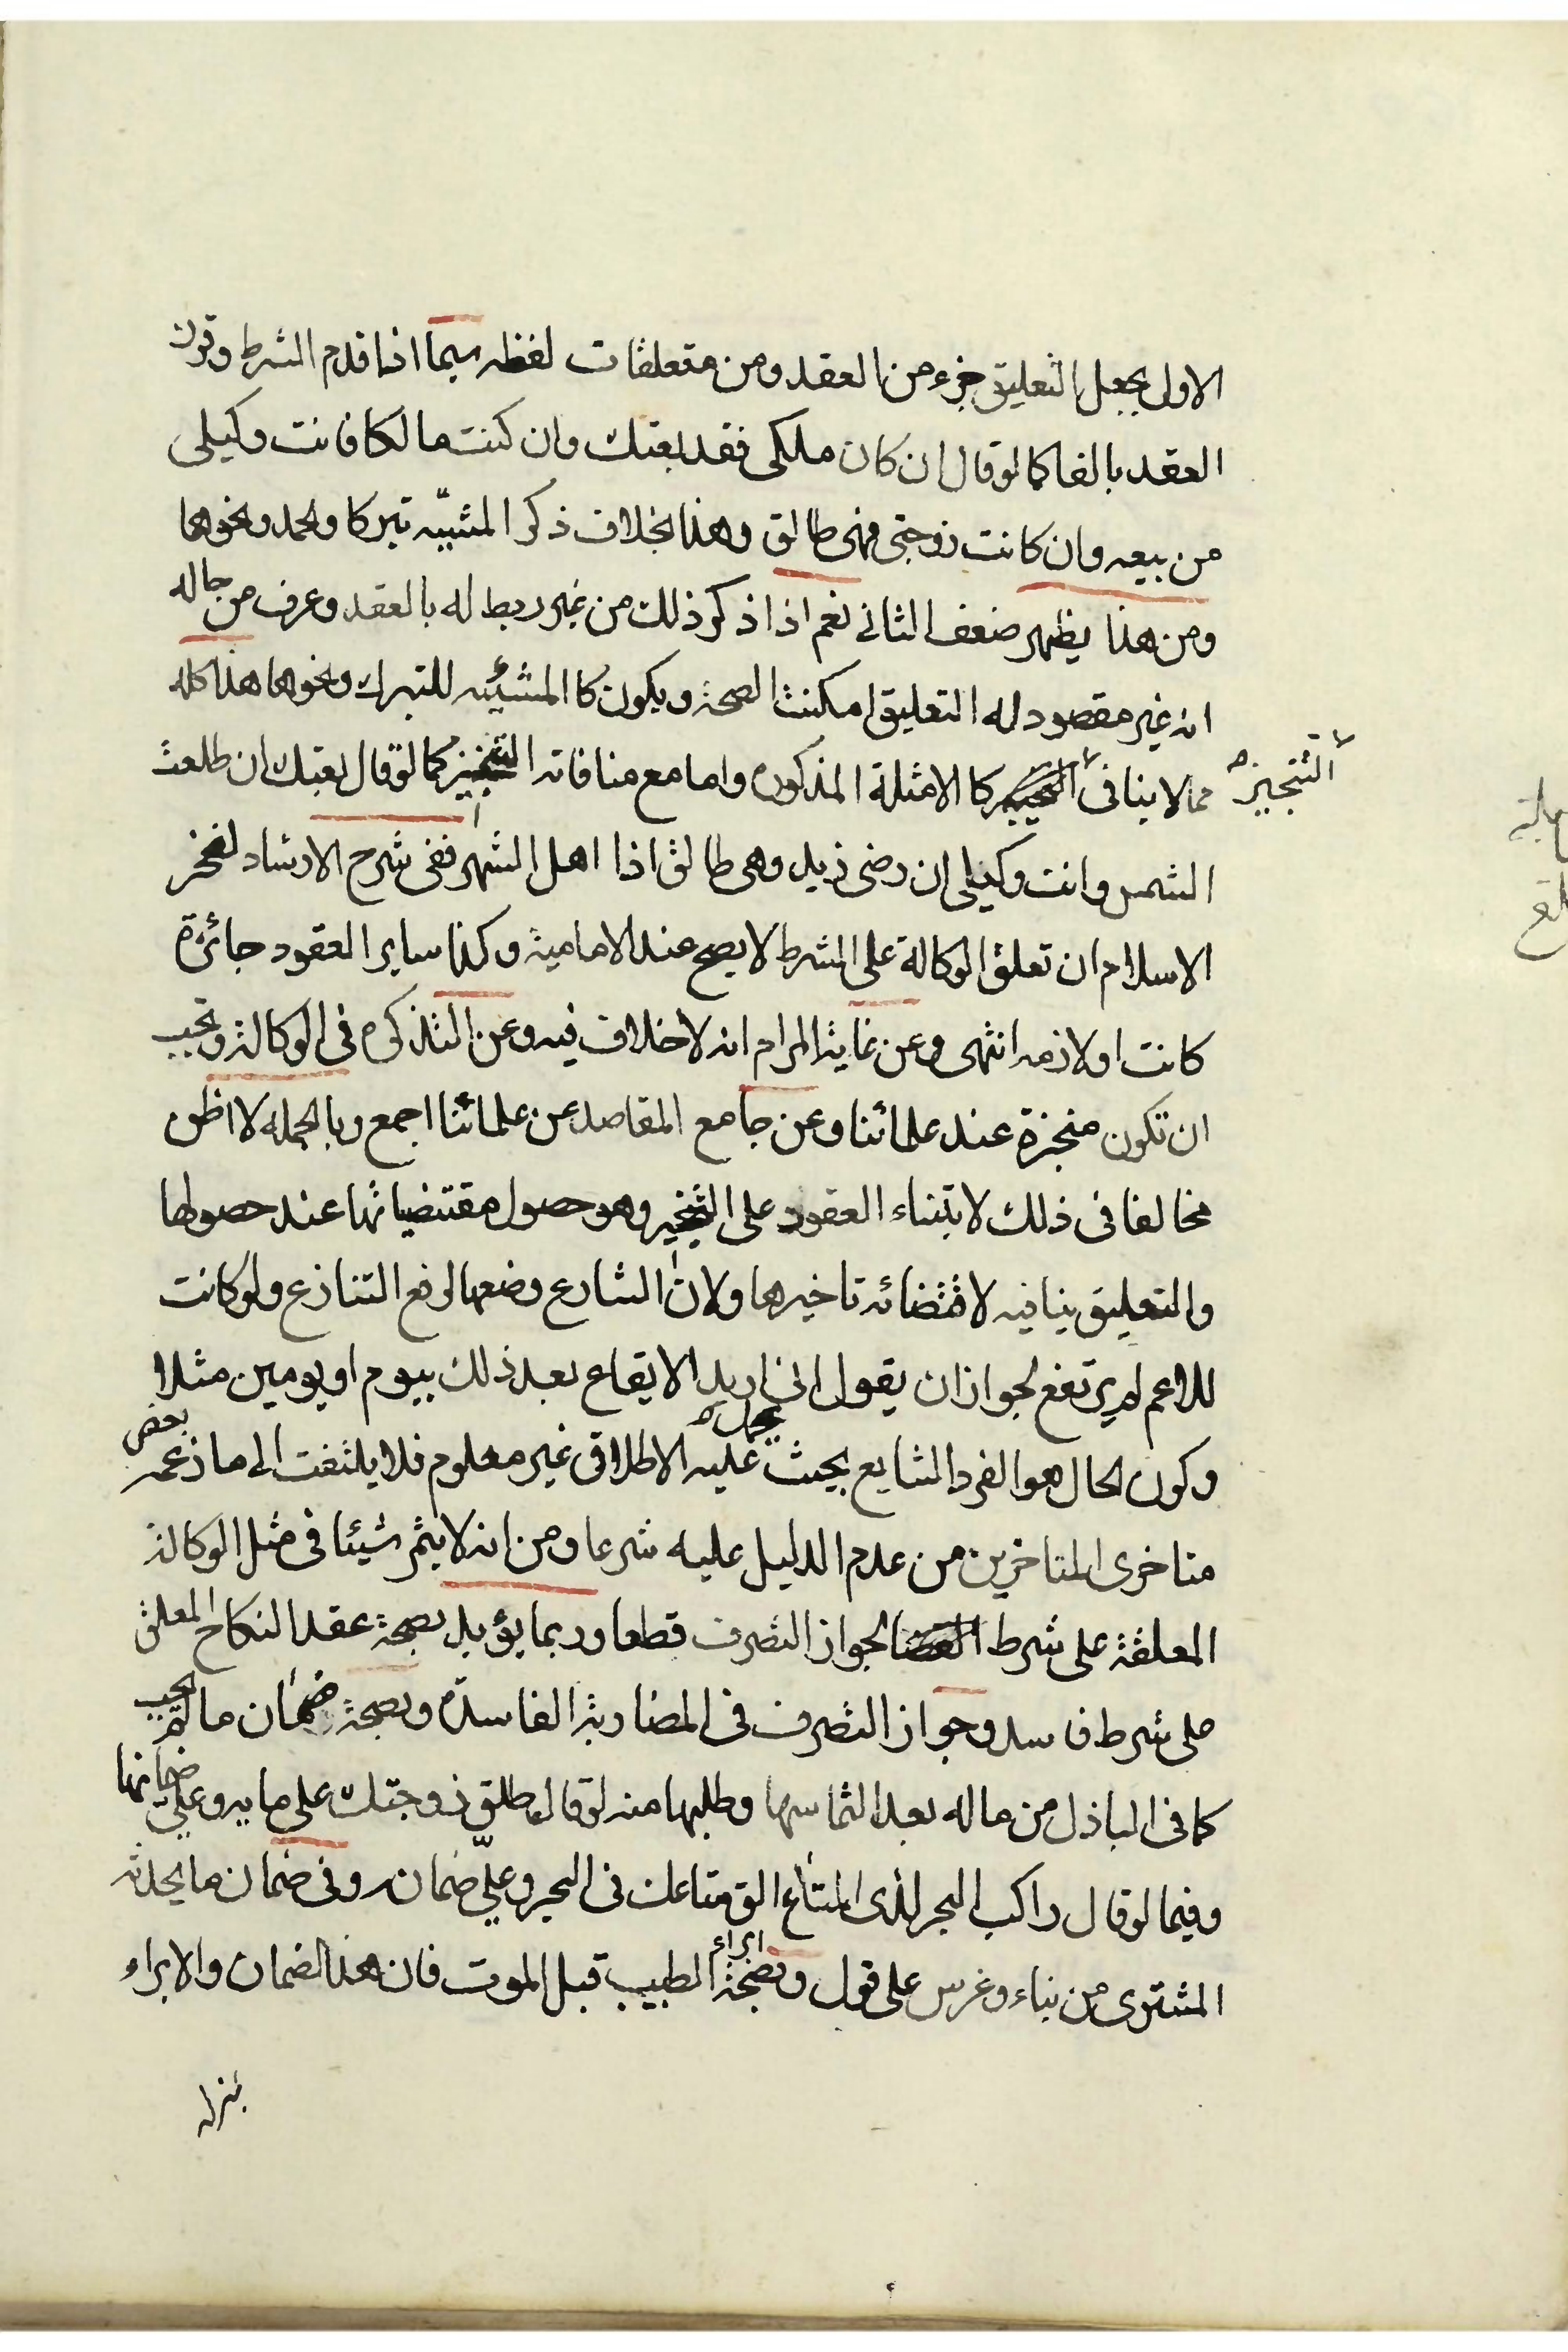 الاولى بجعل التعليق جزء من العقد ومن متعلقات لفظه سيما اذا قدم الشرط وقرن
العقد بالفا كما لو قال ان كان ملكى فقد بعتك وان كنت مالكا فانت وكيلى
من بيعه وان كانت زوجتى فهى طالق وهذا بخلاف ذكر المشيّه تبركا ولحمد ونحوها
ومن هذا يظهر ضعف الثانى نعم اذا ذكر ذلك من غير ربط له بالعقد وعرف من حاله
انه غير مقصود له التعليق امكنت الصحة ويكون كا المشيئه للتبرك ونحوها هذا كله
مما لا ينافى التنجيز كا الامثلة المذكوره واما مع منافاته التنجيز كما لو قال بعتك ان طلعت
الشمس وانت وكيلى ان رضى زيد وهى طالق اذا اهل الشهر ففى شرح الارشاد لفخر
الاسلام ان تعلق الوكالة على الشرط لا يصح عند الامامية وكذا ساير العقود جائزة
كانت او لازمه انتهى وعن غاية المرام انه لا خلاف فيه وعن التذكره فى الوكالة ويجب
ان تكون منجزة عند علمائنا وعن جامع المقاصد عن علمائنا اجمع وبالجمله لا اظن
مخالفا فى ذلك لابتناء العقود على التنجيز وهو حصول مقتضياتها عند حصولها
والتعليق ينافيه لاقتضائه تاخيرها ولان الشارع وضعها لرفع التنازع ولو كانت
للاعم لم يرتفع لجواز ان يقول انى اريد الايقاع بعد ذلك بيوم او يومين مثلا
وكون الحال هو الفرد الشايع بحيث يحمل عليه الاطلاق غير معلوم فلا يلتفت الى ما زعمه بعض
متاخرى المتاخرين من عدم الدليل عليه شرعا ومن انه لا يثمر شيئا فى مثل الوكالة
المعلقة على شرط لجواز التصرف قطعا وربما يؤيد بصحة عقد النكاح المعلق
على شرط فاسد وجواز التصرف فى المضاربة الفاسدة وبصحة ضمان ما لم يجب
كما فى الباذل من ماله بعد التماسها وطلبها منه لو قال طلق زوجتك على مايه وعلى ضمانها
وفيما لو قال راكب البحر لذى المتاع الق متاعك فى البحر وعلىّ ضمانه وفى ضمان ما يحدثه
المشترى من بناء وغرس على قول وبصحة ابراء الطبيب قبل الموت فان هذا الضمان والابراء
بمنزلة
التنجيز